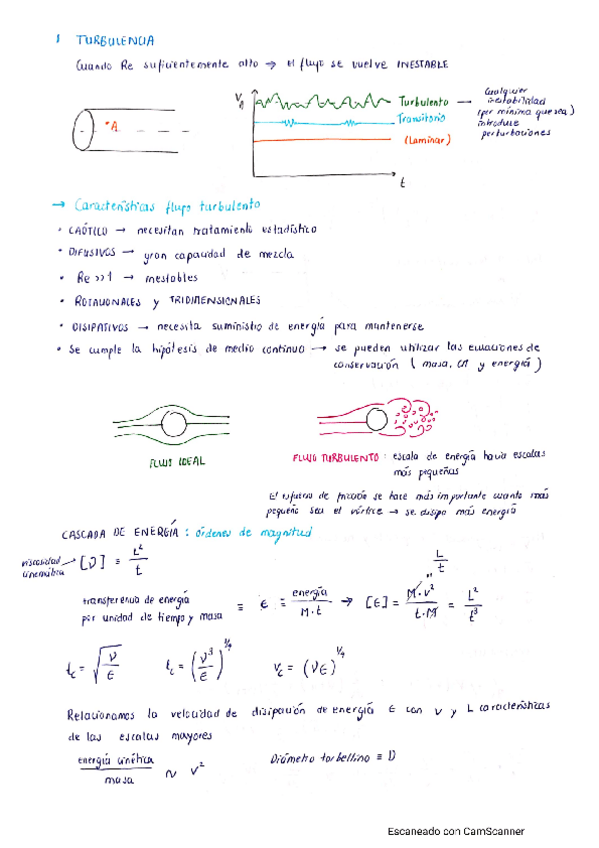 1 TURBULENCIA
Cuando Re suficientemente alto → el flujo se vuelve INESTABLE
A
V_A
t
Turbulento — Cualquier inestabilidad (por mínima que sea) introduce perturbaciones
Transitorio
(Laminar)
→ Características flujo turbulento
• CAÓTICO → necesitan tratamiento estadístico
• DIFUSIVOS → gran capacidad de mezcla
• Re >>1 → inestables
• ROTACIONALES y TRIDIMENSIONALES
• DISIPATIVOS → necesita suministro de energía para mantenerse
• Se cumple la hipótesis de medio continuo → se pueden utilizar las ecuaciones de
conservación (masa, CM y energía)
FLUJO IDEAL
FLUJO TURBULENTO : escala de energía hacia escalas
más pequeñas
El esfuerzo de fricción se hace más importante cuanto más
pequeño sea el vórtice → se disipa más energía
CASCADA DE ENERGÍA : órdenes de magnitud
viscosidad cinemática [ν] ≡ L²/t
transferencia de energía
por unidad de tiempo y masa
≡ ϵ ≡ energía/M·t → [ϵ] = M·v²/t·M = L²/t³
L/t
t_c = √(ν/ϵ) t_c = (ν³/ϵ)^1/4 v_c = (νϵ)^1/4
Relacionamos la velocidad de disipación de energía ϵ con v y L características
de las escalas mayores
energía cinética/masa ~ v² Diámetro torbellino ≡ D
Escaneado con CamScanner